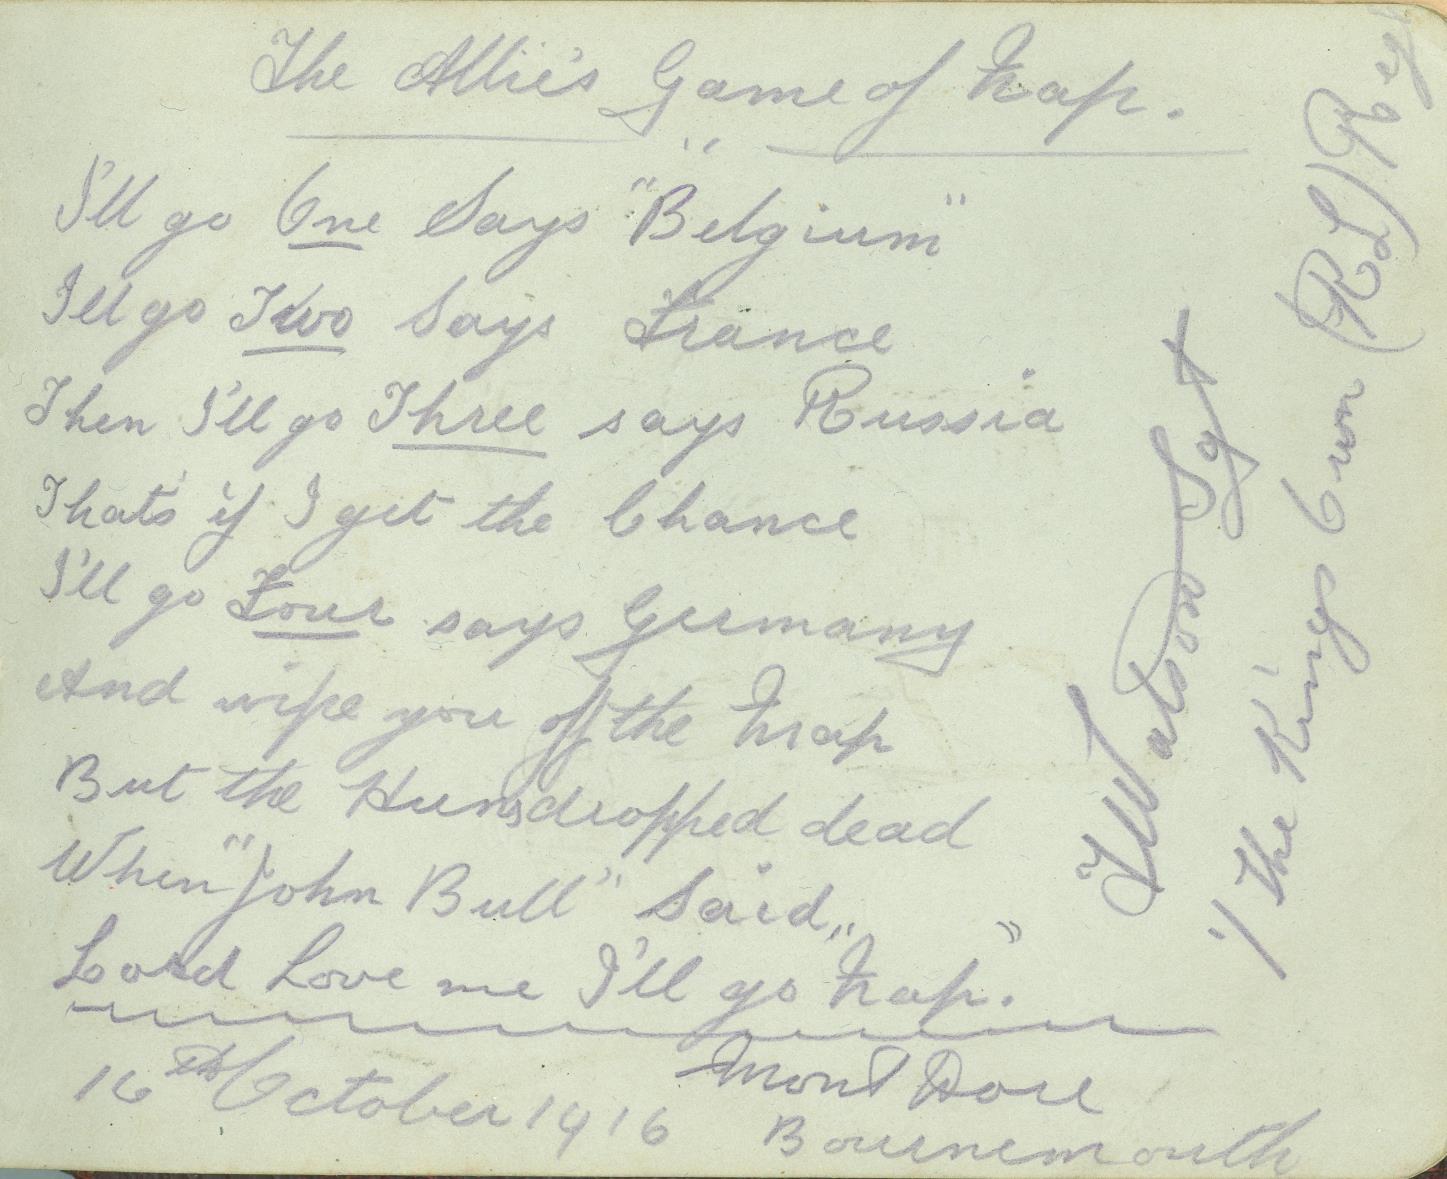 The Allie's Game of Nap.
I'll go One Says "Belgium"
I'll go Two Says France
Then I'll go Three says Russia
Thats if I get the Chance
I'll go Four says Germany
And wipe you off the Map
But the Huns dropped dead
When "John Bull" Said,,
Lord Love me I'll go Nap."
16th October 1916
Mont Dore
Bournemouth
Watson Sgt
1/ The King's Own (RL) Regt